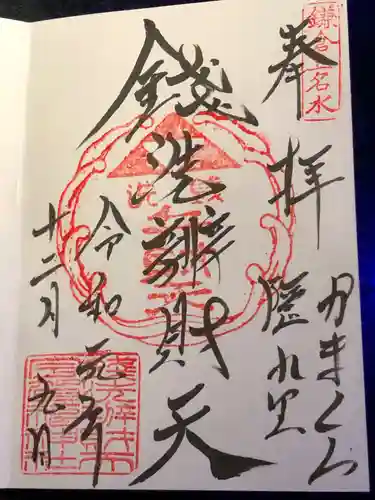 鎌倉五名水
奉拝
かまくら
隠れ里
銭洗辨財天
令和元年
十二月
九日